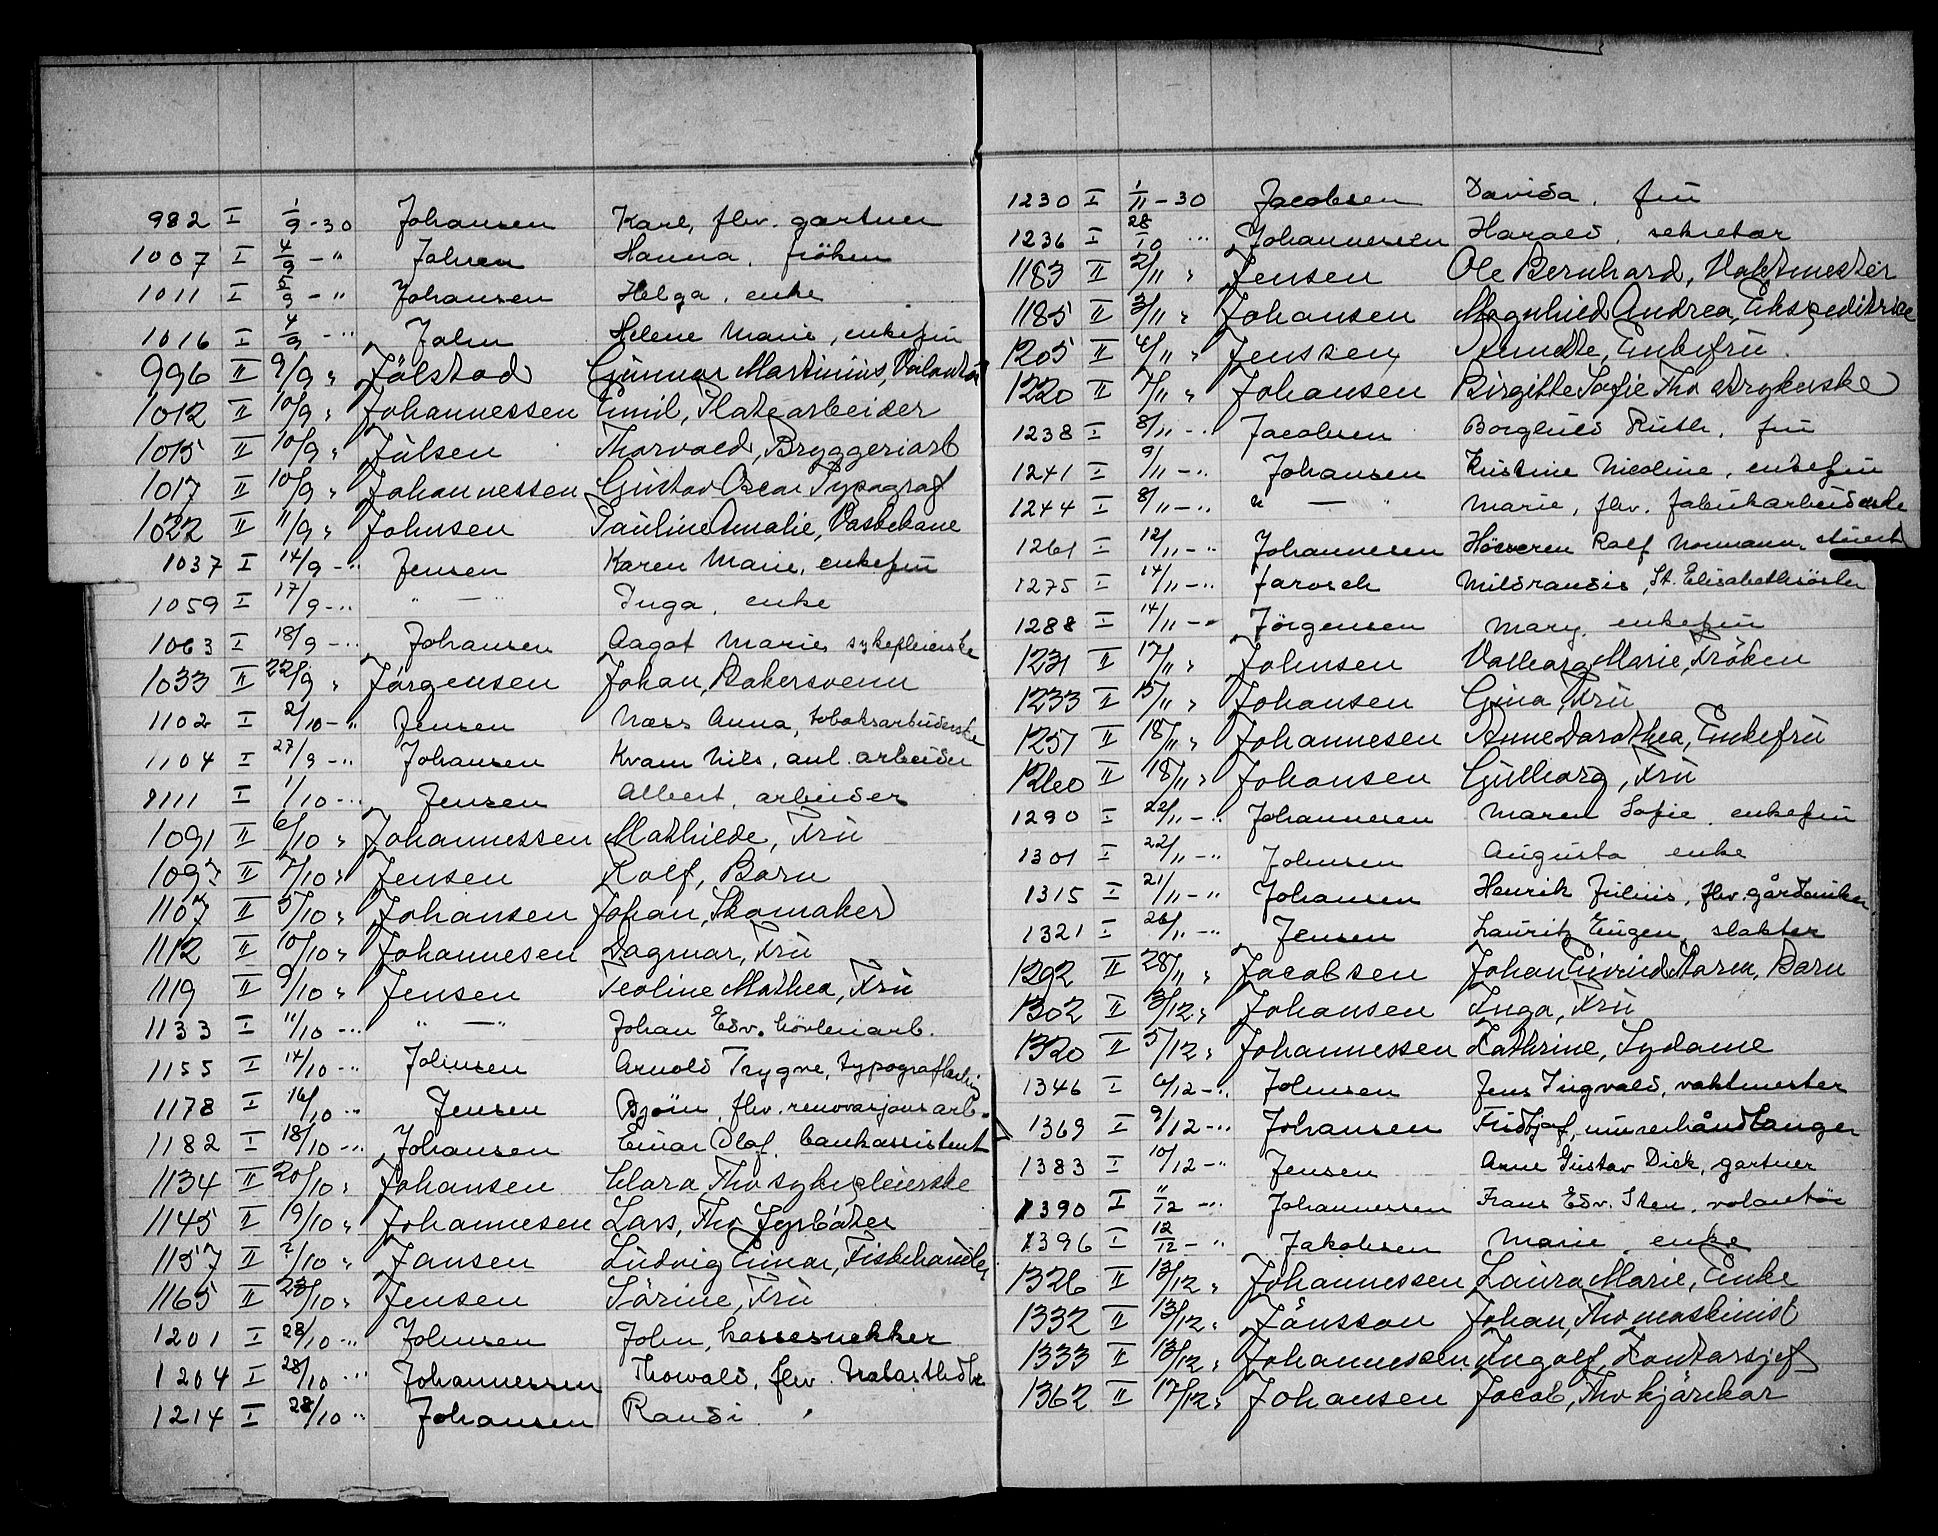 982 I 1/9-30 Johansen Karl, fhv. gartner
1007 I 4/9 - " Johnsen Hanna, fröken
1011 I 5/9 - " Johansen Helga, enke
1016 I 4/9 - " John Helene Marie, enkefru
996 II 9/9 " Jölstad Gunnar Martinius, Volontør
1012 II 10/9 " Johannessen Emil, Platearbeider
1015 II 10/9 " Julsen Thorvald, Bryggeriarb
1017 II 10/9 " Johannessen Gustav Oscar Typograf
1022 II 11/9 " Johnsen Pauline Amalie, Vaskekone
1037 I 14/9 - " Jensen Karen Marie, enkefru
1059 I 17/9 - " " — " Inga, enke
1063 I 18/9 - " Johansen Aagot Marie, sykepleierske
1033 II 22/9 " Jörgensen Johan, Bakersvenn
1102 I 2/10 - " Jensen Næss Anna, tobaksarbeiderske
1104 I 27/9 - " Johansen Kvam Nils, anl. arbeider
1111 I 1/10 - " Jensen Albert, arbeider
1091 II 6/10 " Johannessen Mathilde, Fru
1097 II 7/10 " Jensen Rolf, Barn
1107 II 5/10 " Johansen Johan, Skomaker
1112 II 10/10 " Johannesen Dagmar, Fru
1119 II 9/10 " Jensen Teoline Mathea, Fru
1133 I 11/10 - " " — " Johan Edv. hövleriarb.
1155 I 14/10 - " Johnsen Arnold Trygve, typograflærling
1178 I 16/10 " Jensen Bjørn, fhv. renovasjonsarb.
1182 I 18/10 - " Johansen Einar Olaf, bankassistent
1134 II 20/10 " Johansen Clara Fhv sykepleierske
1145 II 9/10 " Johannesen Lars, Fhv Fyrböter
1157 II 2/10 " Jansen Ludvig Einar, Fiskehandler
1165 II 23/10 " Jensen Sörine, Fru
1201 I 28/10 - " Johnsen John, kassesnekker
1204 I 28/10 " Johannessen Thorvald, fhv.
1214 I 28/10 " Johansen Randi
1230 I 1/11 - 30 Jacobsen Davida, fru
1236 I 28/10 " Johannessen Harald, sekretær
1183 II 2/11 " Jensen Ole Bernhard, Vaktmester
1185 II 3/11 " Johansen Magnhild Andrea, Ekspeditrise
1205 II 4/11 " Jenssen Enkefru.
1220 II 7/11 " Johansen Birgitte Sofie Fhv strykerske
1238 I 8/11 - " Jacobsen Borghild Ruth, fru
1241 I 9/11 - " Johansen Kristine Nicoline, enkefru
1244 I 8/11 - " " — " Marie, fhv. fabrikarbeiderske
1261 I 12/11 - " Johannesen Rolf Normann, stuert
1275 I 14/11 - " Jarosch Mildrandis, St. Elisabethsöster
1288 I 14/11 - " Jörgensen Mary, enkefru
1231 II 17/11 " Johnsen Valborg Marie, Fröken
1233 II 15/11 " Johansen Gina, Fru
1251 II 18/11 " Johannesen Anne Dorothea, Enkefru
1260 II 18/11 " Johansen Gulborg, Fru
1290 I 22/11 - " Johannesen Maren Sofie, enkefru
1301 I 22/11 - " Johnsen Augusta enke
1315 I 21/11 - " Johansen Henrik Julius, fhv. gårdeier
1321 I 26/11 - " Jensen Lauritz Eugen, slakter
1292 II 28/11 " Jacobsen Johan Eivind Maren, Barn
1302 II 13/12 " Johansen Inga, Fru
1320 II 5/12 " Johannessen Kathrine, Sydame
1346 I 6/12 - " Johnsen Jens Ingvald, vaktmester
1369 I 9/12 - " Johansen Fridtjof, murerhåndlanger
1383 I 10/12 - " Jensen Arne Gustav Dick, gartner
1390 I 11/12 - " Johannessen Frans Edv. Sten, volontör
1396 I 12/12 - " Jakobsen Marie, enke
1326 II 13/12 " Johannessen Laura Marie, Enke
1332 II 13/12 " Jönsson Johan, Fhv maskinist
1333 II 13/12 " Johannessen Ingolf, Kontorsjef
1362 II 17/12 " Johansen Jacob, Fhv kjörekar